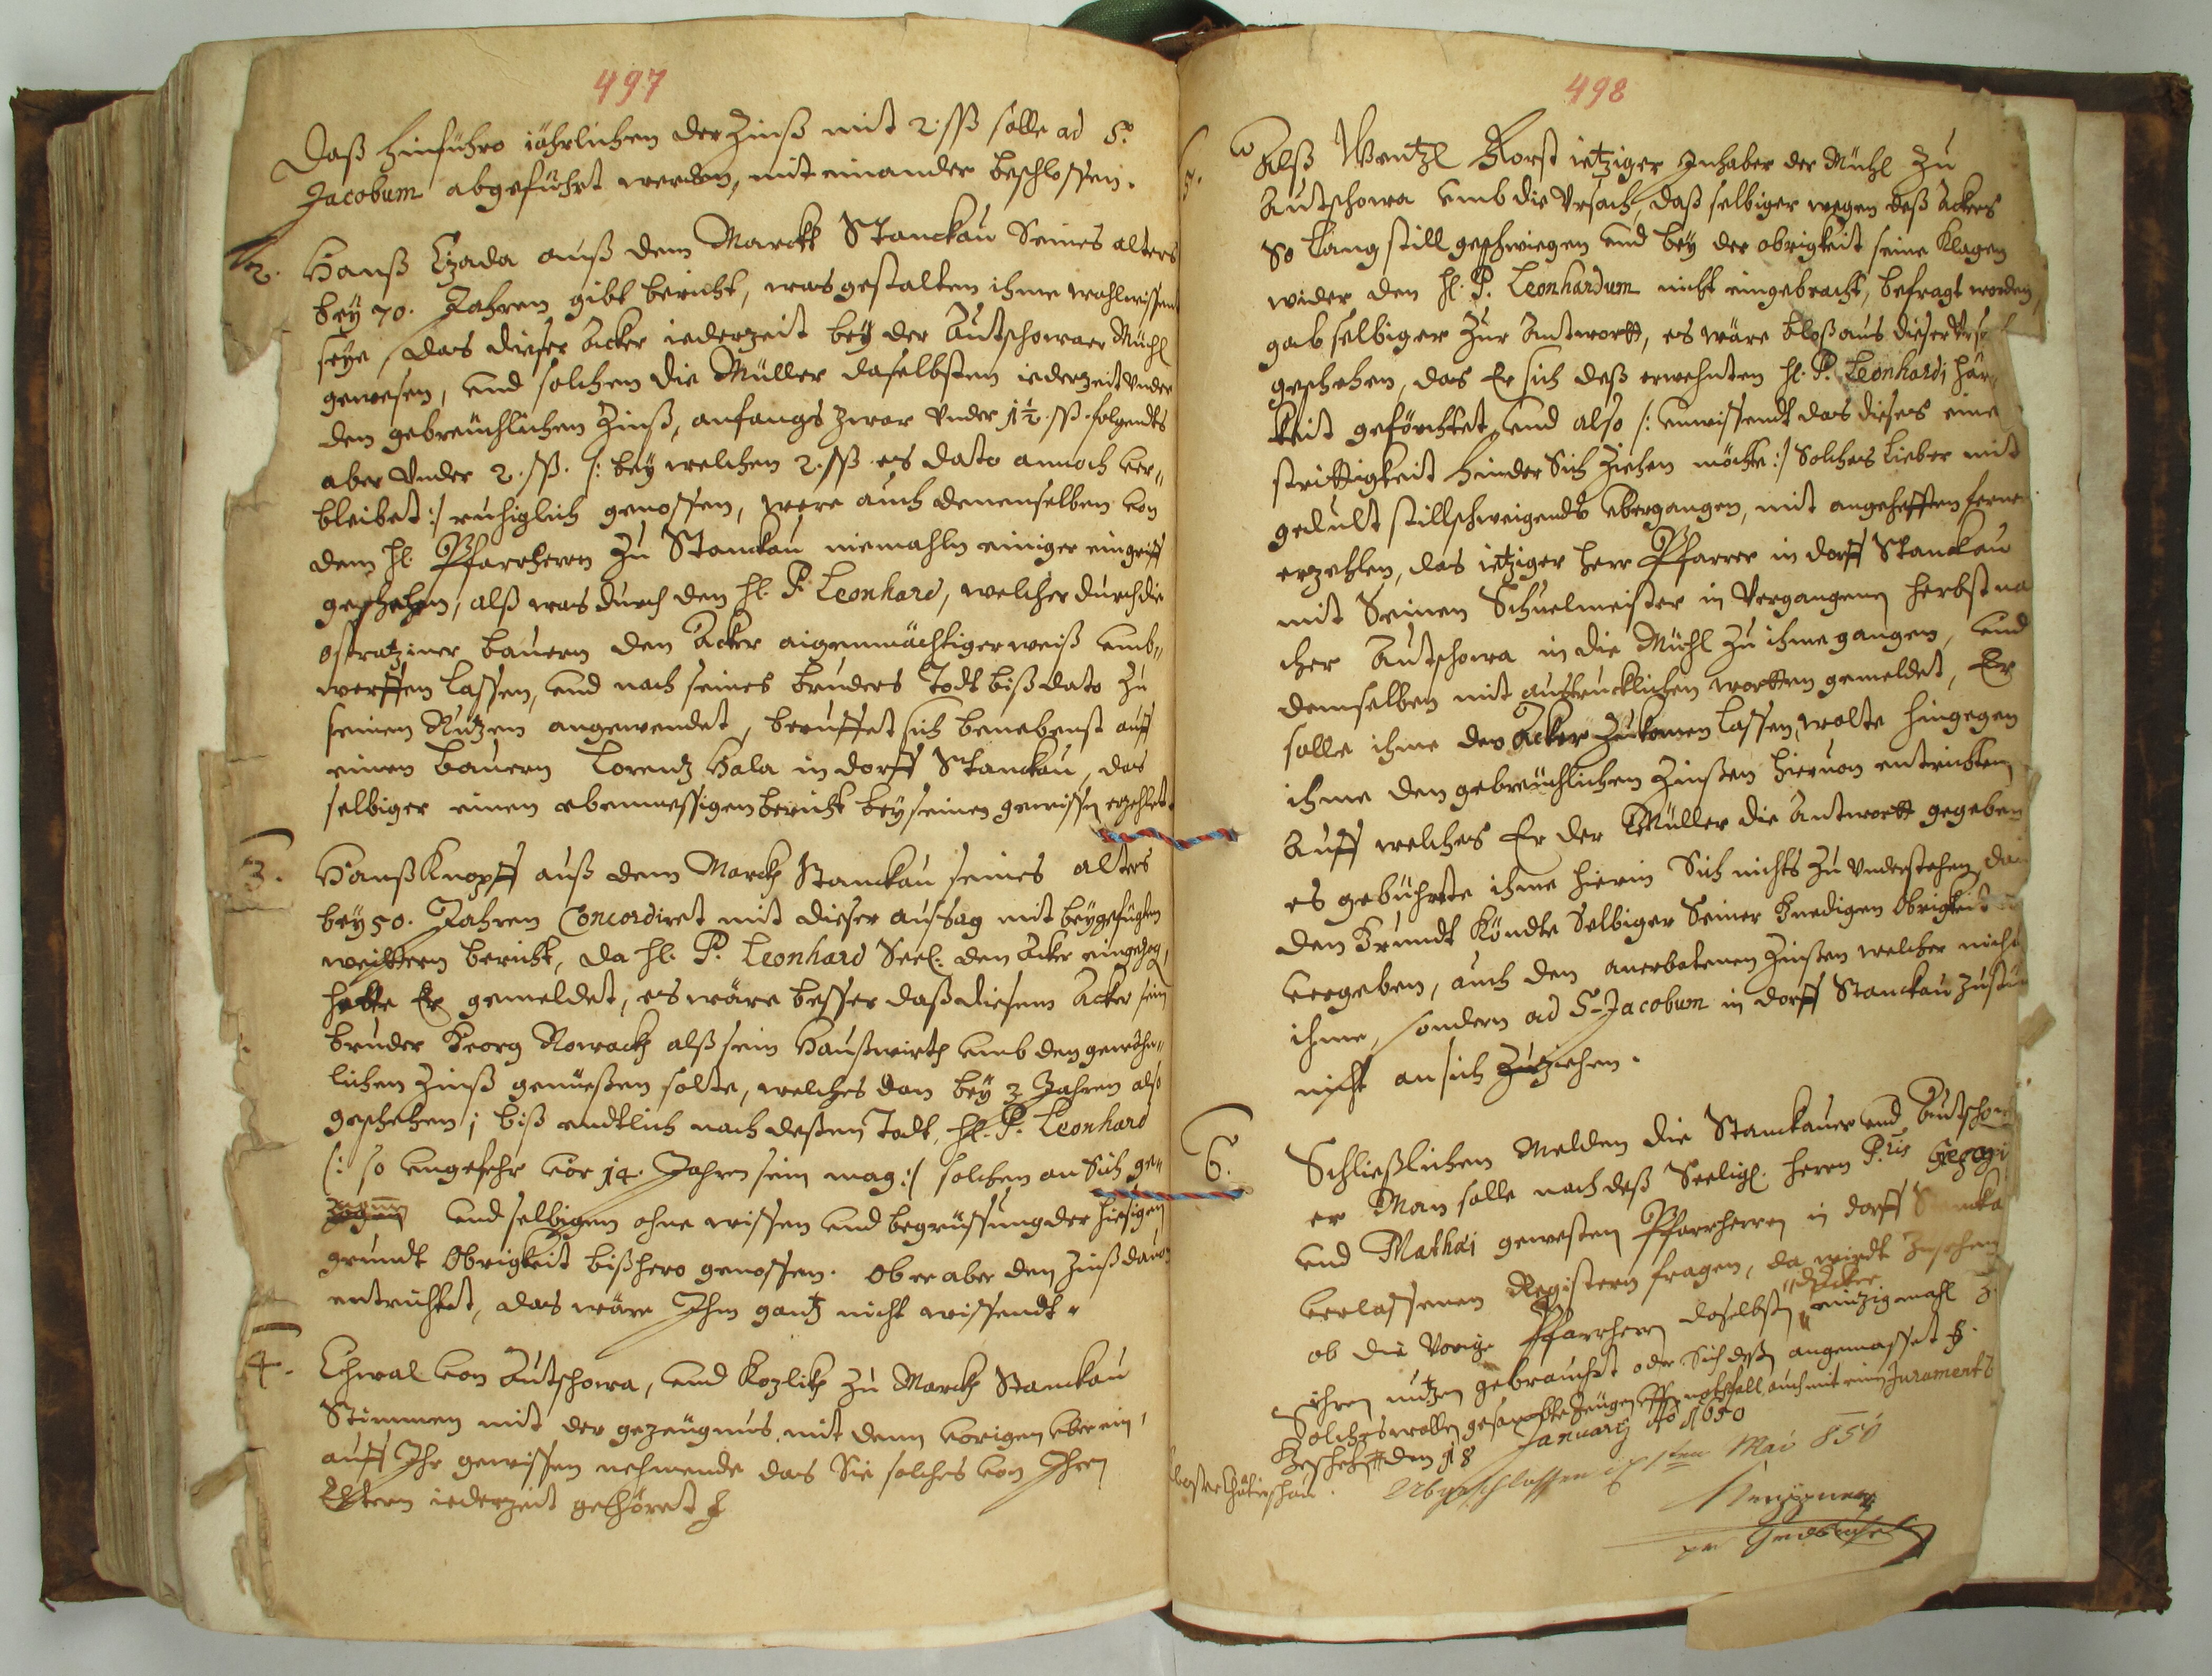 497
Daß hinführo jährlichen der Zinß mit 2. ßß solle ad S.
Jacobum abgeführt werden, mit einander beschlossen.
2. Hanß Czada auß dem Marckt Stanckau Seines alters
bey 70. Jahren gibt bericht, was gestalten ihme wohlwissent
seye, das dieser Acker iederzeit bey der Autschowaer Mühl
gewesen, und solchen die Müller daselbsten iederzeit Under
den gebreüchlichen Zinß, anfangs zwar Under 1½ ßß. folgendts
aber Under 2. ßß. /: bey welchen 2. ßß es dato annoch ver„
bleibet :/ ruhiglich genossen, were auch denenselben von
dem H. Pfarrherrn zu Stanckau niemahln einiger eingriff
geschehen, alß was durch den H. P. Leonhard, welcher durch die
Ostratziner bauern den Acker aigenmächtiger weiß umb„
werffen lassen, und nach seines bruders Todt biß dato zu
seinen Nutzen angewendet, beruffet sich benebenst auff
einen bauern Lorentz Hala in dorff Stanckau, das
selbiger einen ebenmessigen bericht bey seinen gewissen erzehlet.
3. Hanß Knopff auß dem Marck Stanckau seines alters
bey 50. Jahren Concordiret mit dieser außag mit beygefügten
weittern bericht, da H. P. Leonhard Seel. den Acker eingezog,
hette Er gemeldet, es wäre besser daß diesem Acker sein
bruder Georg Nowack alß sein Haußwirth umb den gewöhn„
lichen Zinß genüeßen solte, welches dan bey 3 Jahren also
geschehen; biß endtlich nach deßen Todt, H. P. Leonhard
/: so ungefehr vor 14. Jahren sein mag :/ solchen an Sich ge„
zogen und selbigen ohne wissen und begrüssung der hiesigen
grundt Obrigkeit bißhero genossen. Ob er aber den Zinß davon
entrichtet, das wäre Ihm gantz nicht wissendt.
4. Chwal von Autschowa, und Kozlik zu Marck Stanckau
Stimmen mit der gezeügnus mit denn vorigen über ein,
auff Ihr gewissen nehmende das Sie solches von Ihren
Eltern iederzeit gehöret
498
5. Alß Wentzl Horst ietziger Inhaber der Mühl zu
Autschowa umb die Ursach, daß selbiger wegen deß Ackers
so lang still geschwiegen und bey der obrigkeit seine klagen
wider den H. P. Leonhardum nicht eingebracht, befragt worden,
gab selbiger zur Antwortt, es wäre bloß aus dieser
geschehen, das Er sich deß erwehnten H. P. Leonhardi
keit geförchtet, und also /: unwissendt das dieses eine
strittigkeit hinder Sich ziehen möchte :/ solches lieber mit
gedult stillschweigendts übergangen, mit angehefften ferner
erzehlen, das ietziger Herr Pfarrer in dorff Stanckau
mit Seinen Schuelmeister in Vergangenen herbst na
cher Autschowa in die Mühl zu ihme gangen, und
demselben mit austrucklichen wortten gemeldet, Er
solle ihme den Acker zukomen lassen, wolte hingegen
ihme den gebreüchlichen Zinßen hiervon entrichten,
Auff welches Er der Müller die Antwortt gegeben
es gebührete ihme hierin Sich nichts zu Understehen,
den Grundt köndte Selbiger Seiner Gnedigen Obrigkeit
vergeben, auch den anerbotenen Zinßen welcher nicht
ihme, sondern ad S. Jacobum in dorff Stanckau
nicht an sich zu ziehen.
6. Schließlichen Melden die Stanckauer und
er Man solle nach deß Seelig. Herrn P.ris Georgi
und Mathäi gewesten Pfarrherren in dorff
verlassenen Registern fragen, da wirdt
ob die Vorige Pfarrherrn daselbst, „ einzig mahl
„ d. Acker
ihren nutzen gebraucht oder Sich deßen angemasset
Solches wollen gesambte Zeugen nothfall auch mit einem Juraments
Geschehen den 18 January Ao 1650
Abgeschlossen Mai 850